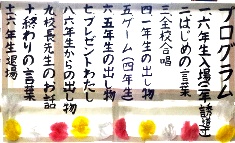 プログラム
一六年生入場(二年誘導)
二はじめの言葉
三全校合唱
四一年生の出し物
五ゲーム(四年生)
六五年生の出し物
七プレゼントわたし
八六年生からの出し物
九校長先生のお話
十終わりの言葉
十一六年生退場